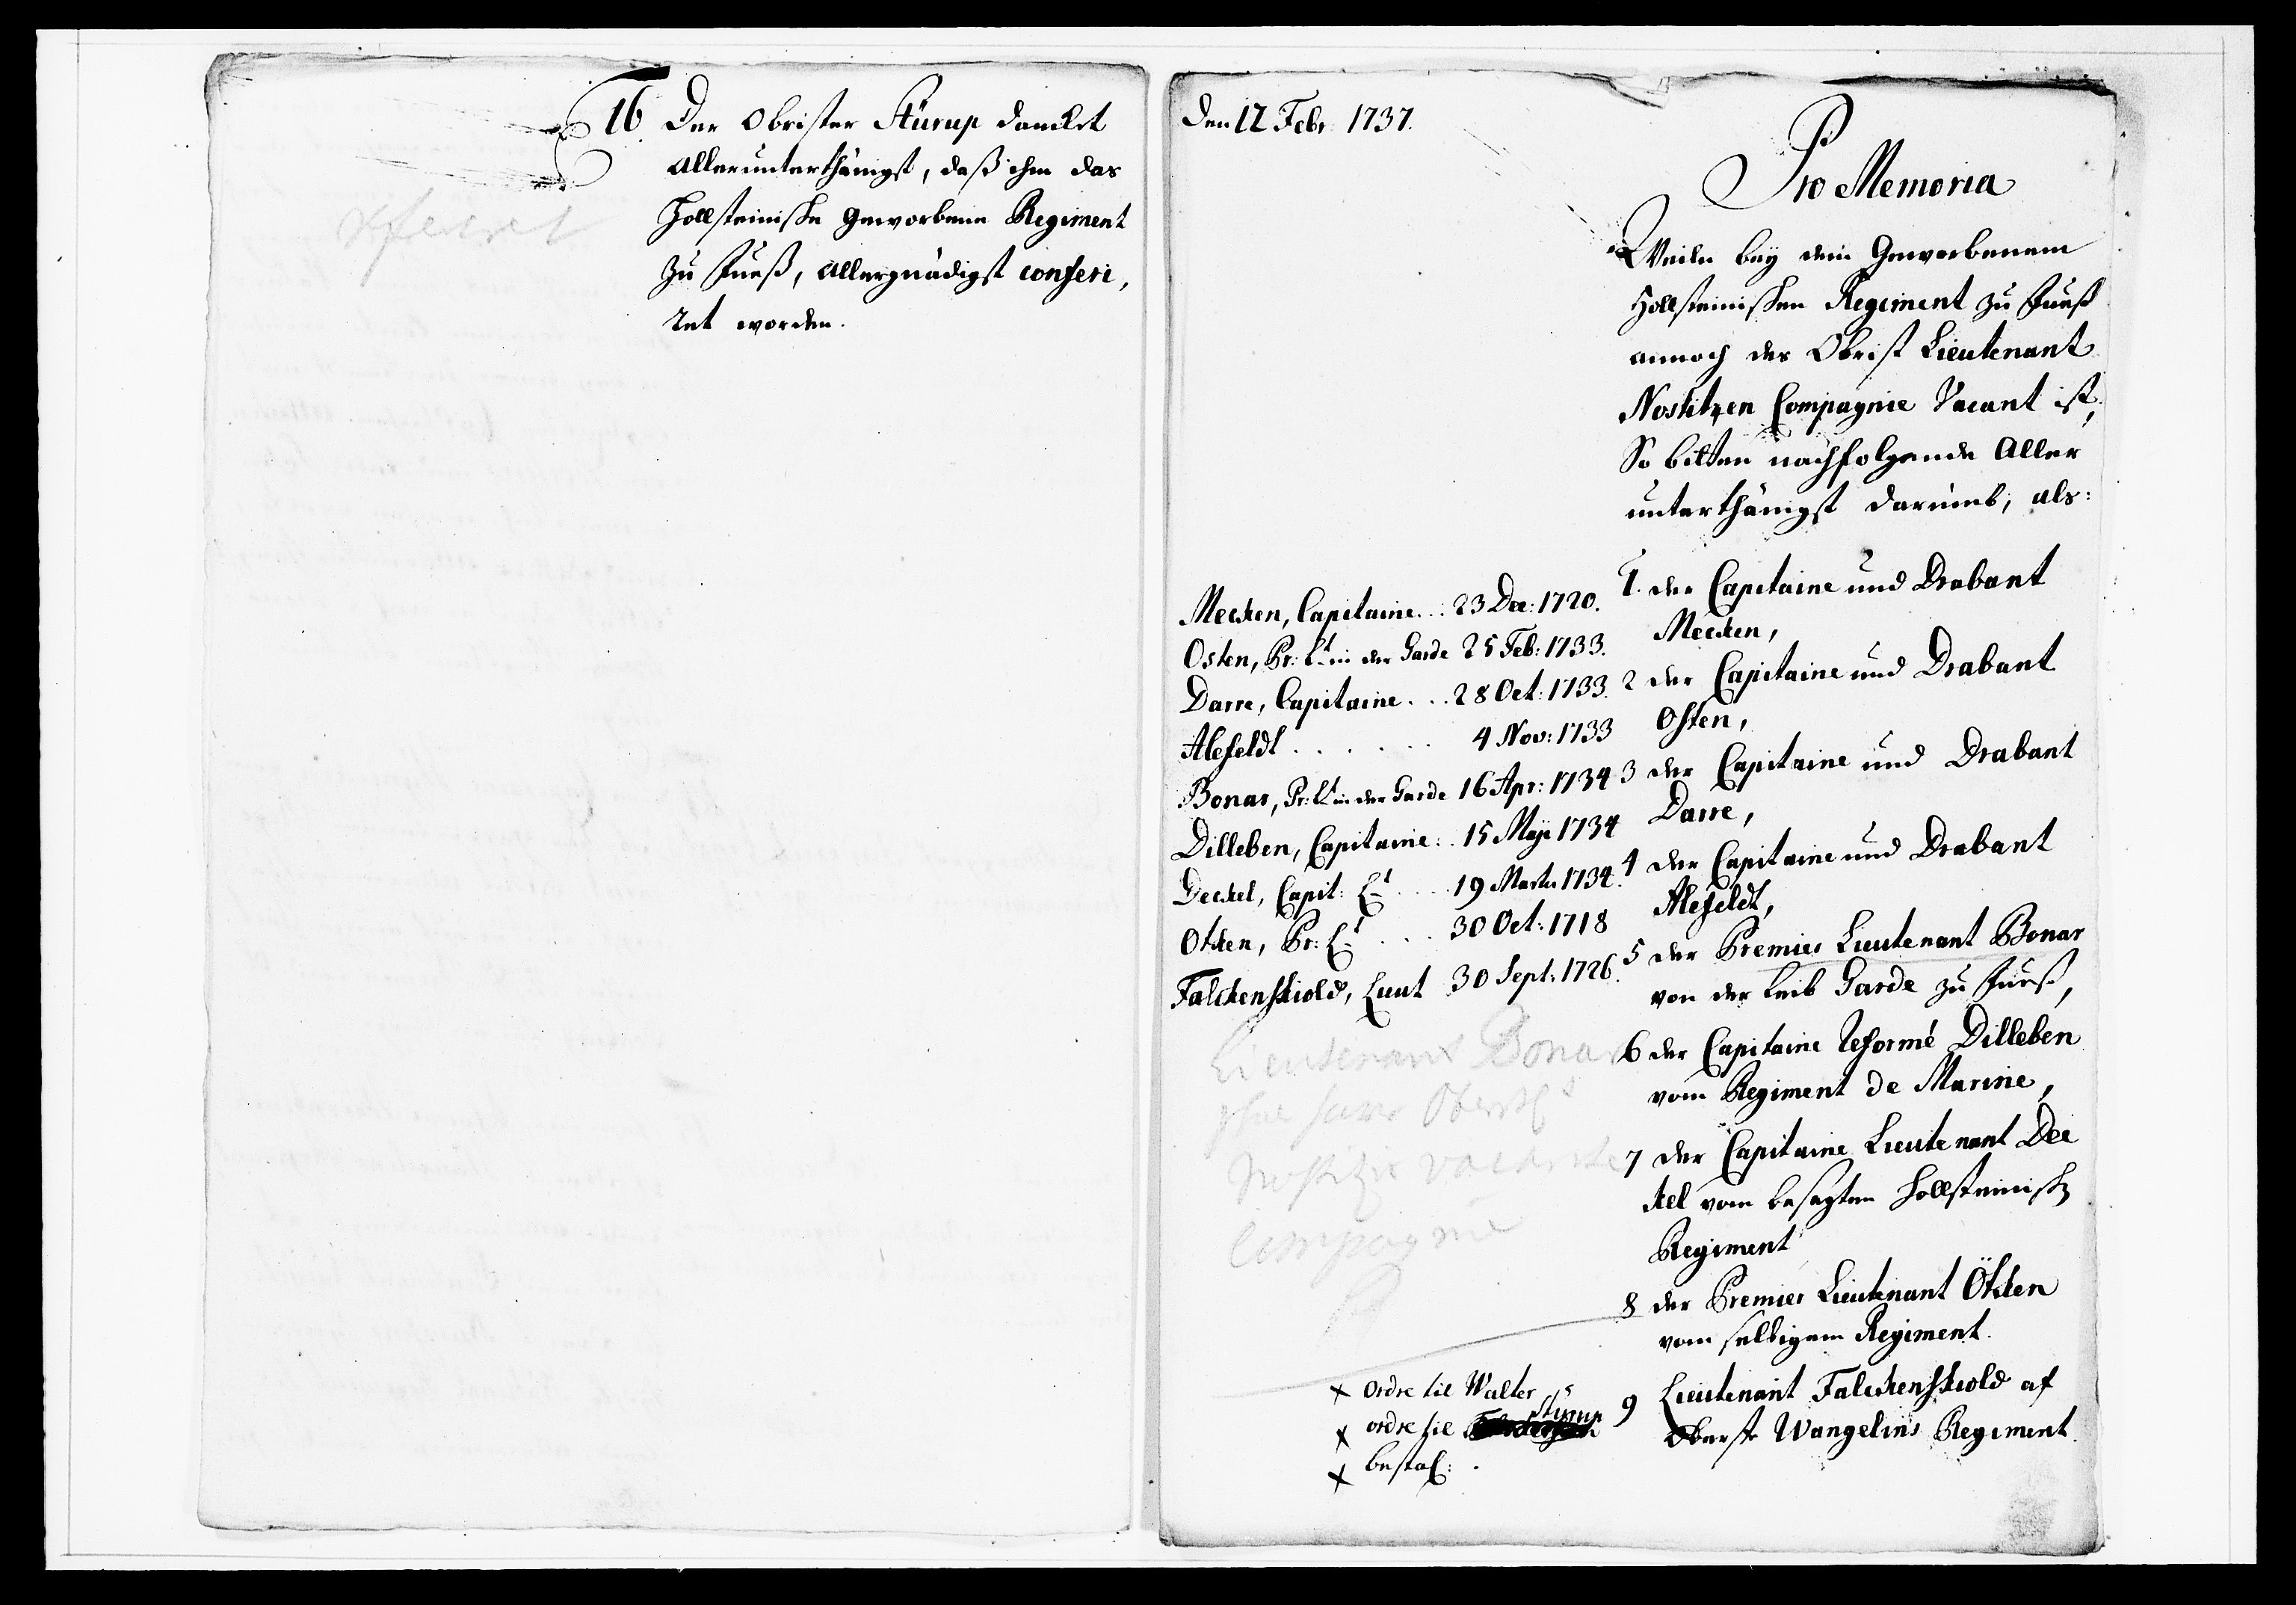 16. Der Obrister Stürup dancket
Allerunterthänigst, daß ihm das
Hollsteinische Geworbene Regiment
zu Fueß, Allergnädigst conferi,
ret worden.
Den 12 Febr: 1737.
Pro Memoria
Weilen bey dem Geworbenem
Hollsteinischen Regiment zu Fueß
annoch des Obrist Lieutenant
Nostitzen Compagnie Vacant ist,
So bitten nachfolgende Aller
unterthänigst darumb, als:
Mecken, Capitaine... 23 Dec: 1720.
Osten, Pr: Lt in der Garde 25 Feb: 1733.
Darre, Capitaine... 28 Oct: 1733.
Alefeldt...... 4 Nov: 1733
Bonar, Pr: Lt in der Garde 16 Apr: 1734
Dilleben, Capitaine: . 15 Maji 1734
Deckel, Capit: Lt .... 19 Martii 1734.
Otken, Pr: Lt ... 30 Oct: 1718
Falckenskiold, Lieut 30 Sept: 1726.
Lieutenant Bonar
Oberstl
Nostitzis vacante
Compagnie
x ordre til Walter
x ordre til Styrup
x bestal:
1. der Capitaine und Drabant
Mecken,
2 der Capitaine und Drabant
Osten,
3 der Capitaine und Drabant
Darre,
4 der Capitaine und Drabant
Alefeldt,
5 der Premier Lieutenant Bonar
von der Leib Garde zu Fueß,
6 der Capitaine Reformé Dilleben
vom Regiment de Marine,
7 der Capitaine Lieutenant Dec
kel vom besagten Hollsteinisch
Regiment
8 der Premier Lieutenant Ötken
vom selbigem Regiment.
9 Lieutenant Falckenskiold af
Oberste Wangelins Regiment.